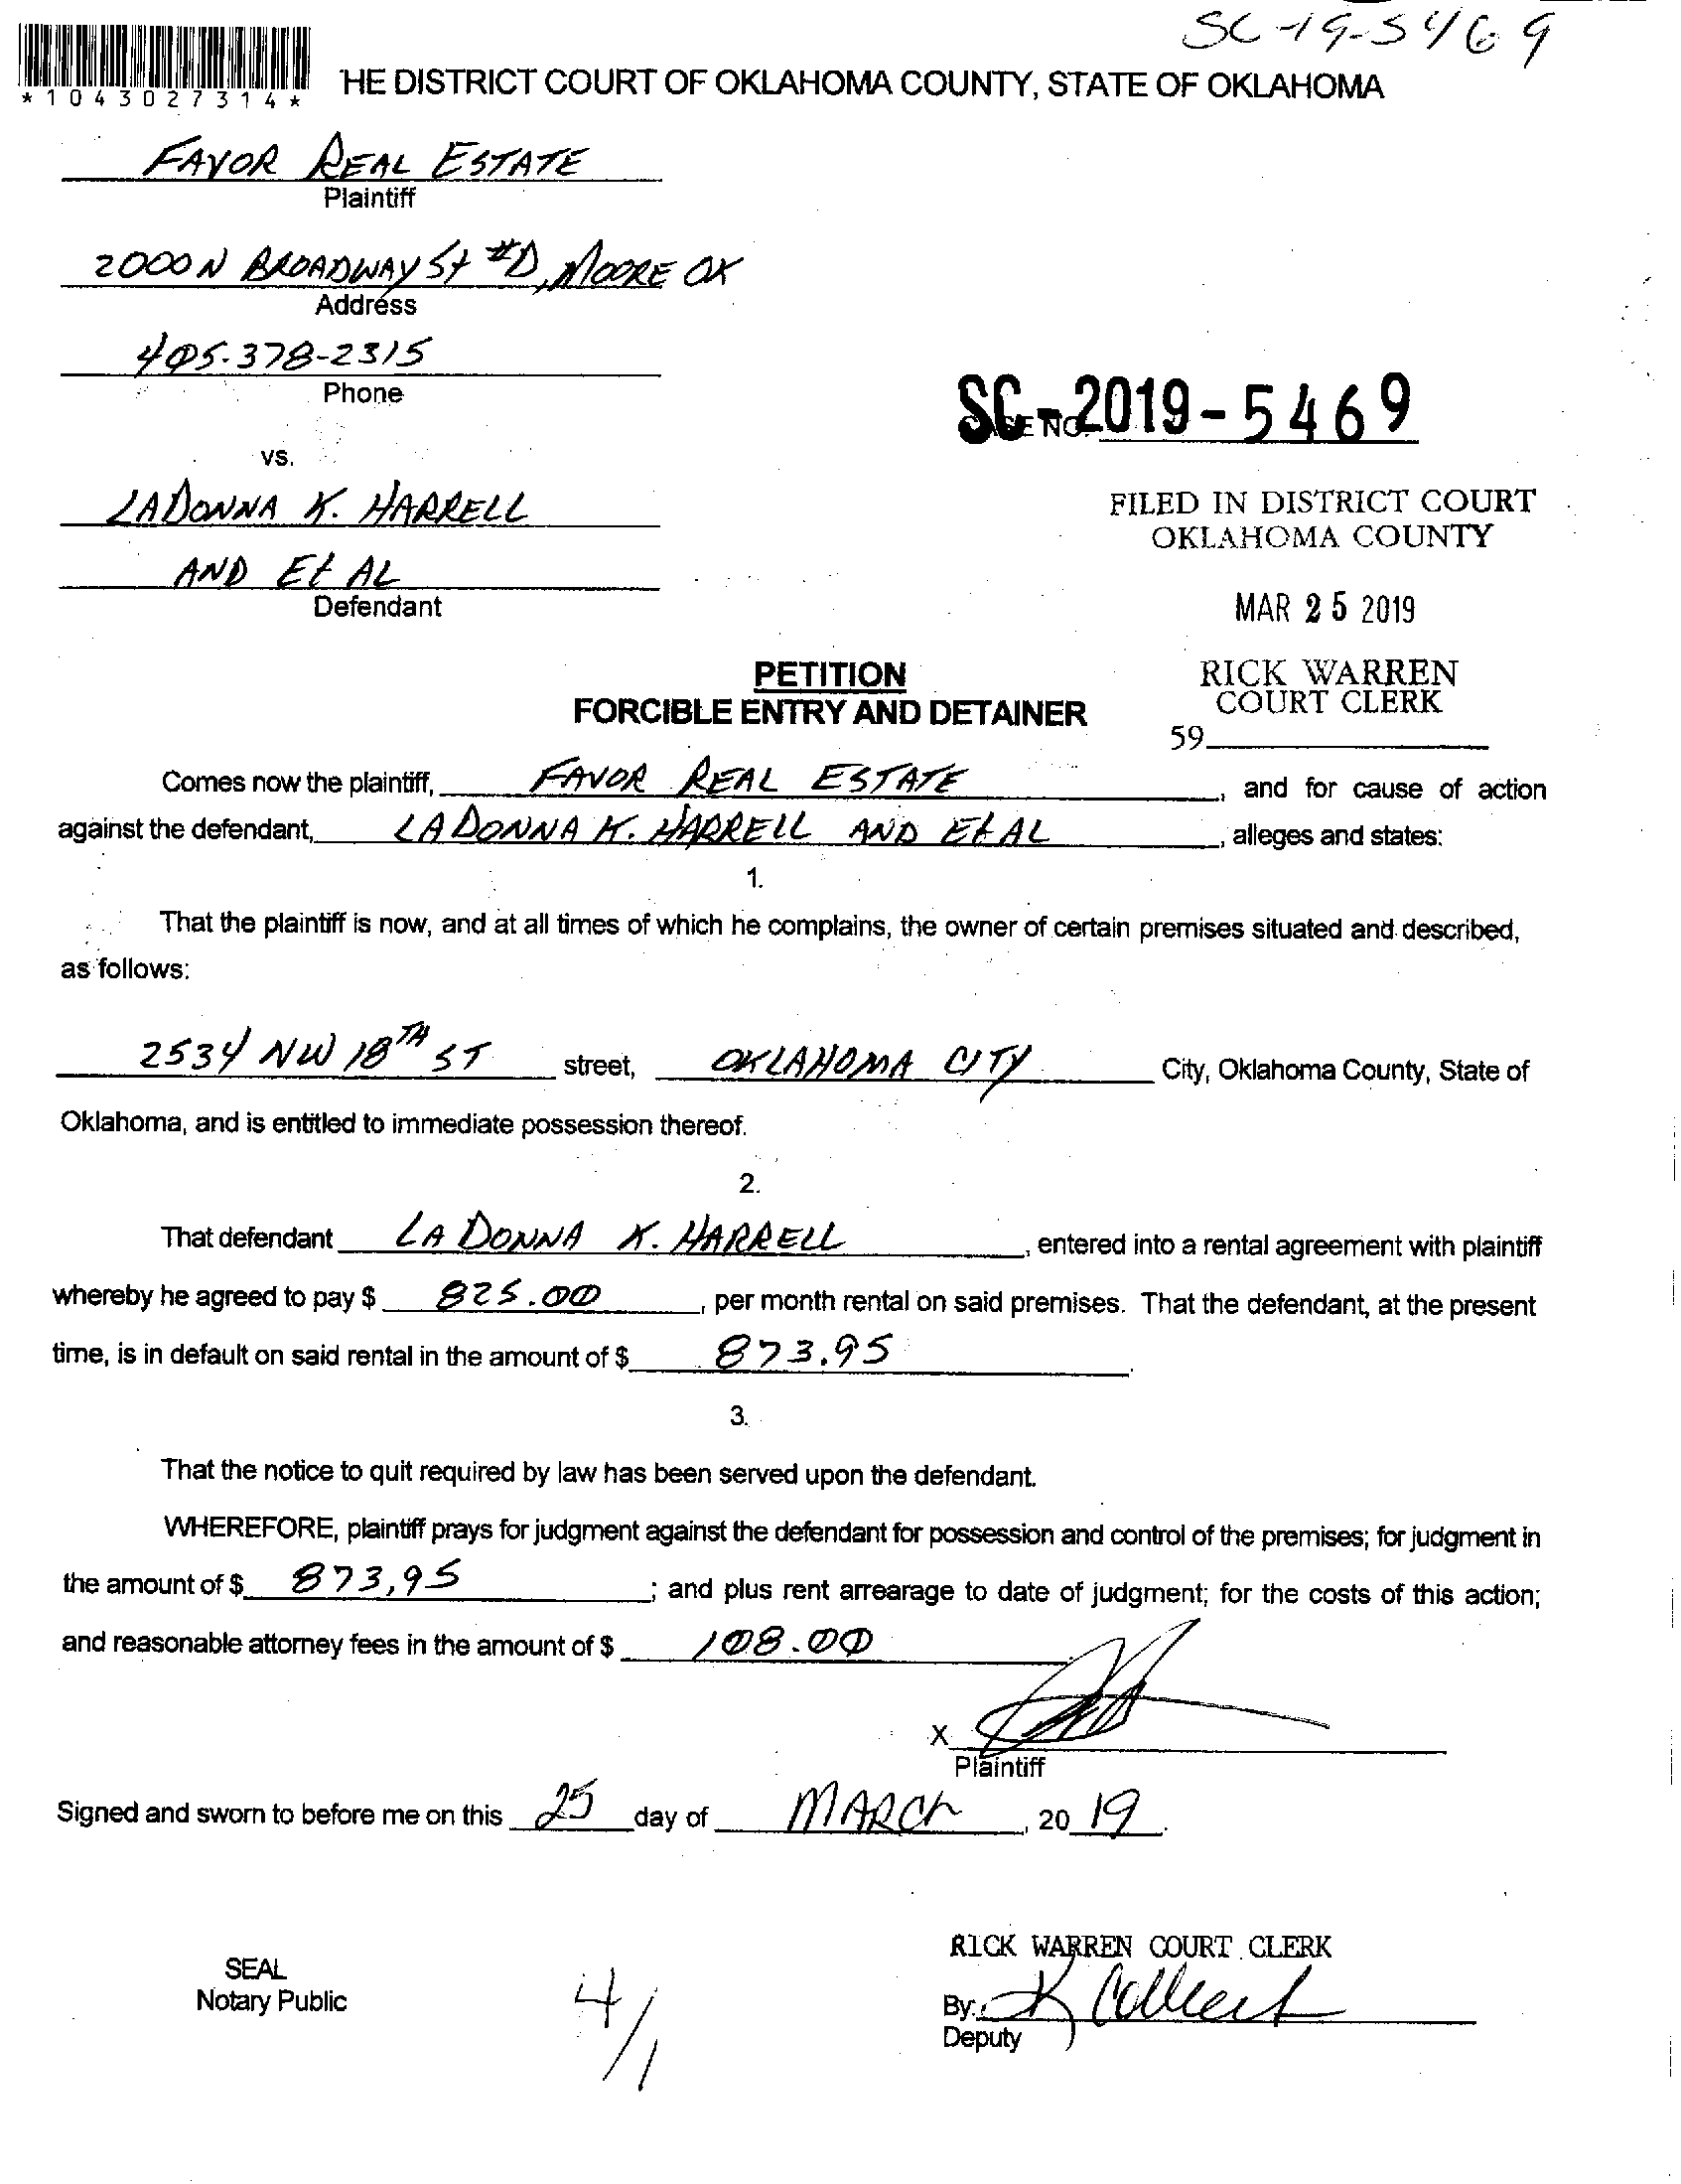 SC-19-5469
*1043027314*
HE DISTRICT COURT OF OKLAHOMA COUNTY, STATE OF OKLAHOMA
FAVOR REAL ESTATE
Plaintiff
2000 N BROADWAY St #D, MOORE OK
Address
405-378-2315
Phone
SC-2019-5469
vs.
LADONNA K. HARRELL
AND Et AL
Defendant
FILED IN DISTRICT COURT
OKLAHOMA COUNTY
MAR 25 2019
RICK WARREN
COURT CLERK
59
PETITION
FORCIBLE ENTRY AND DETAINER
Comes now the plaintiff, FAVOR REAL ESTATE, and for cause of action
against the defendant, LADONNA K. HARRELL AND Et AL, alleges and states:
1.
That the plaintiff is now, and at all times of which he complains, the owner of certain premises situated and described,
as follows:
2534 NW 18TH ST street, OKLAHOMA CITY City, Oklahoma County, State of
Oklahoma, and is entitled to immediate possession thereof.
2.
That defendant LA DONNA K. HARRELL, entered into a rental agreement with plaintiff
whereby he agreed to pay $ 825.00, per month rental on said premises. That the defendant, at the present
time, is in default on said rental in the amount of $ 873.95.
3.
That the notice to quit required by law has been served upon the defendant.
WHEREFORE, plaintiff prays for judgment against the defendant for possession and control of the premises; for judgment in
the amount of $ 873,95; and plus rent arrearage to date of judgment; for the costs of this action;
and reasonable attorney fees in the amount of $ 108.00
X
Plaintiff
Signed and sworn to before me on this 25 day of MARCh, 20 19.
SEAL
Notary Public
4/1
RICK WARREN COURT CLERK
By: K Collect
Deputy